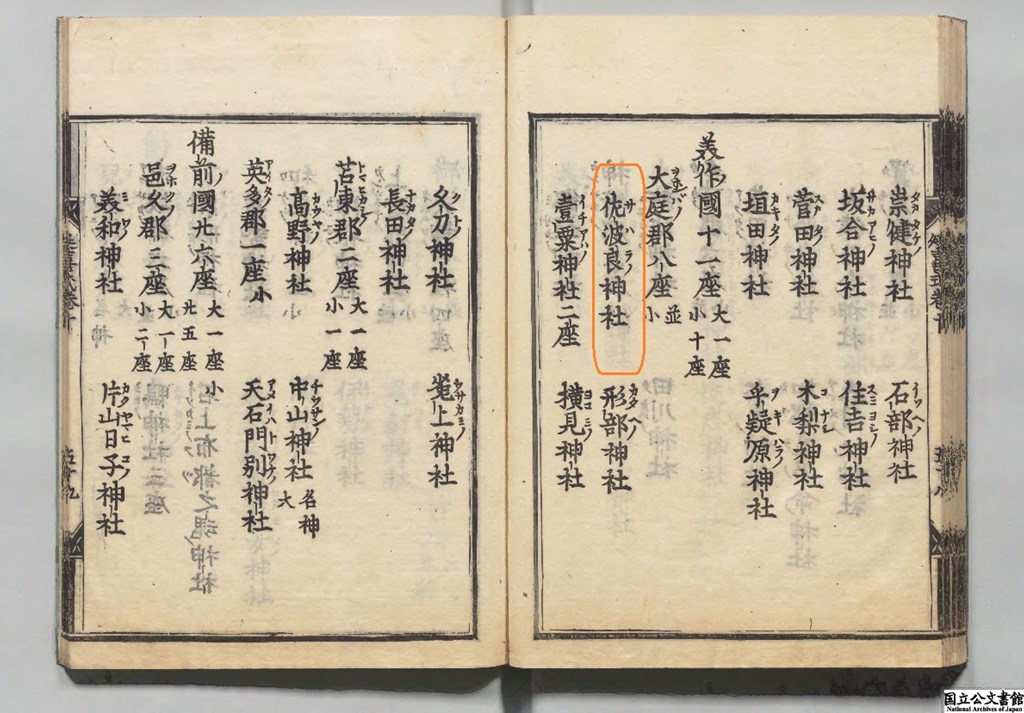 崇健神社　石部神社
坂合神社　住吉神社
菅田神社　木梨神社
垣田神社　乎疑原神社
美作國十一座 大一座 小十座
大庭郡八座 並小
佐波良神社　形部神社
壹粟神社二座　横見神社
久刀神社　兎上神社
長田神社
苫東郡二座 大一座 小一座
高野神社　中山神社 名神大
英多郡一座 小　天石門別神社
備前國廿六座 大一座 小廿五座
邑久郡三座 大一座 小二座
美和神社　片山日子神社
国立公文書館
National Archives of Japan